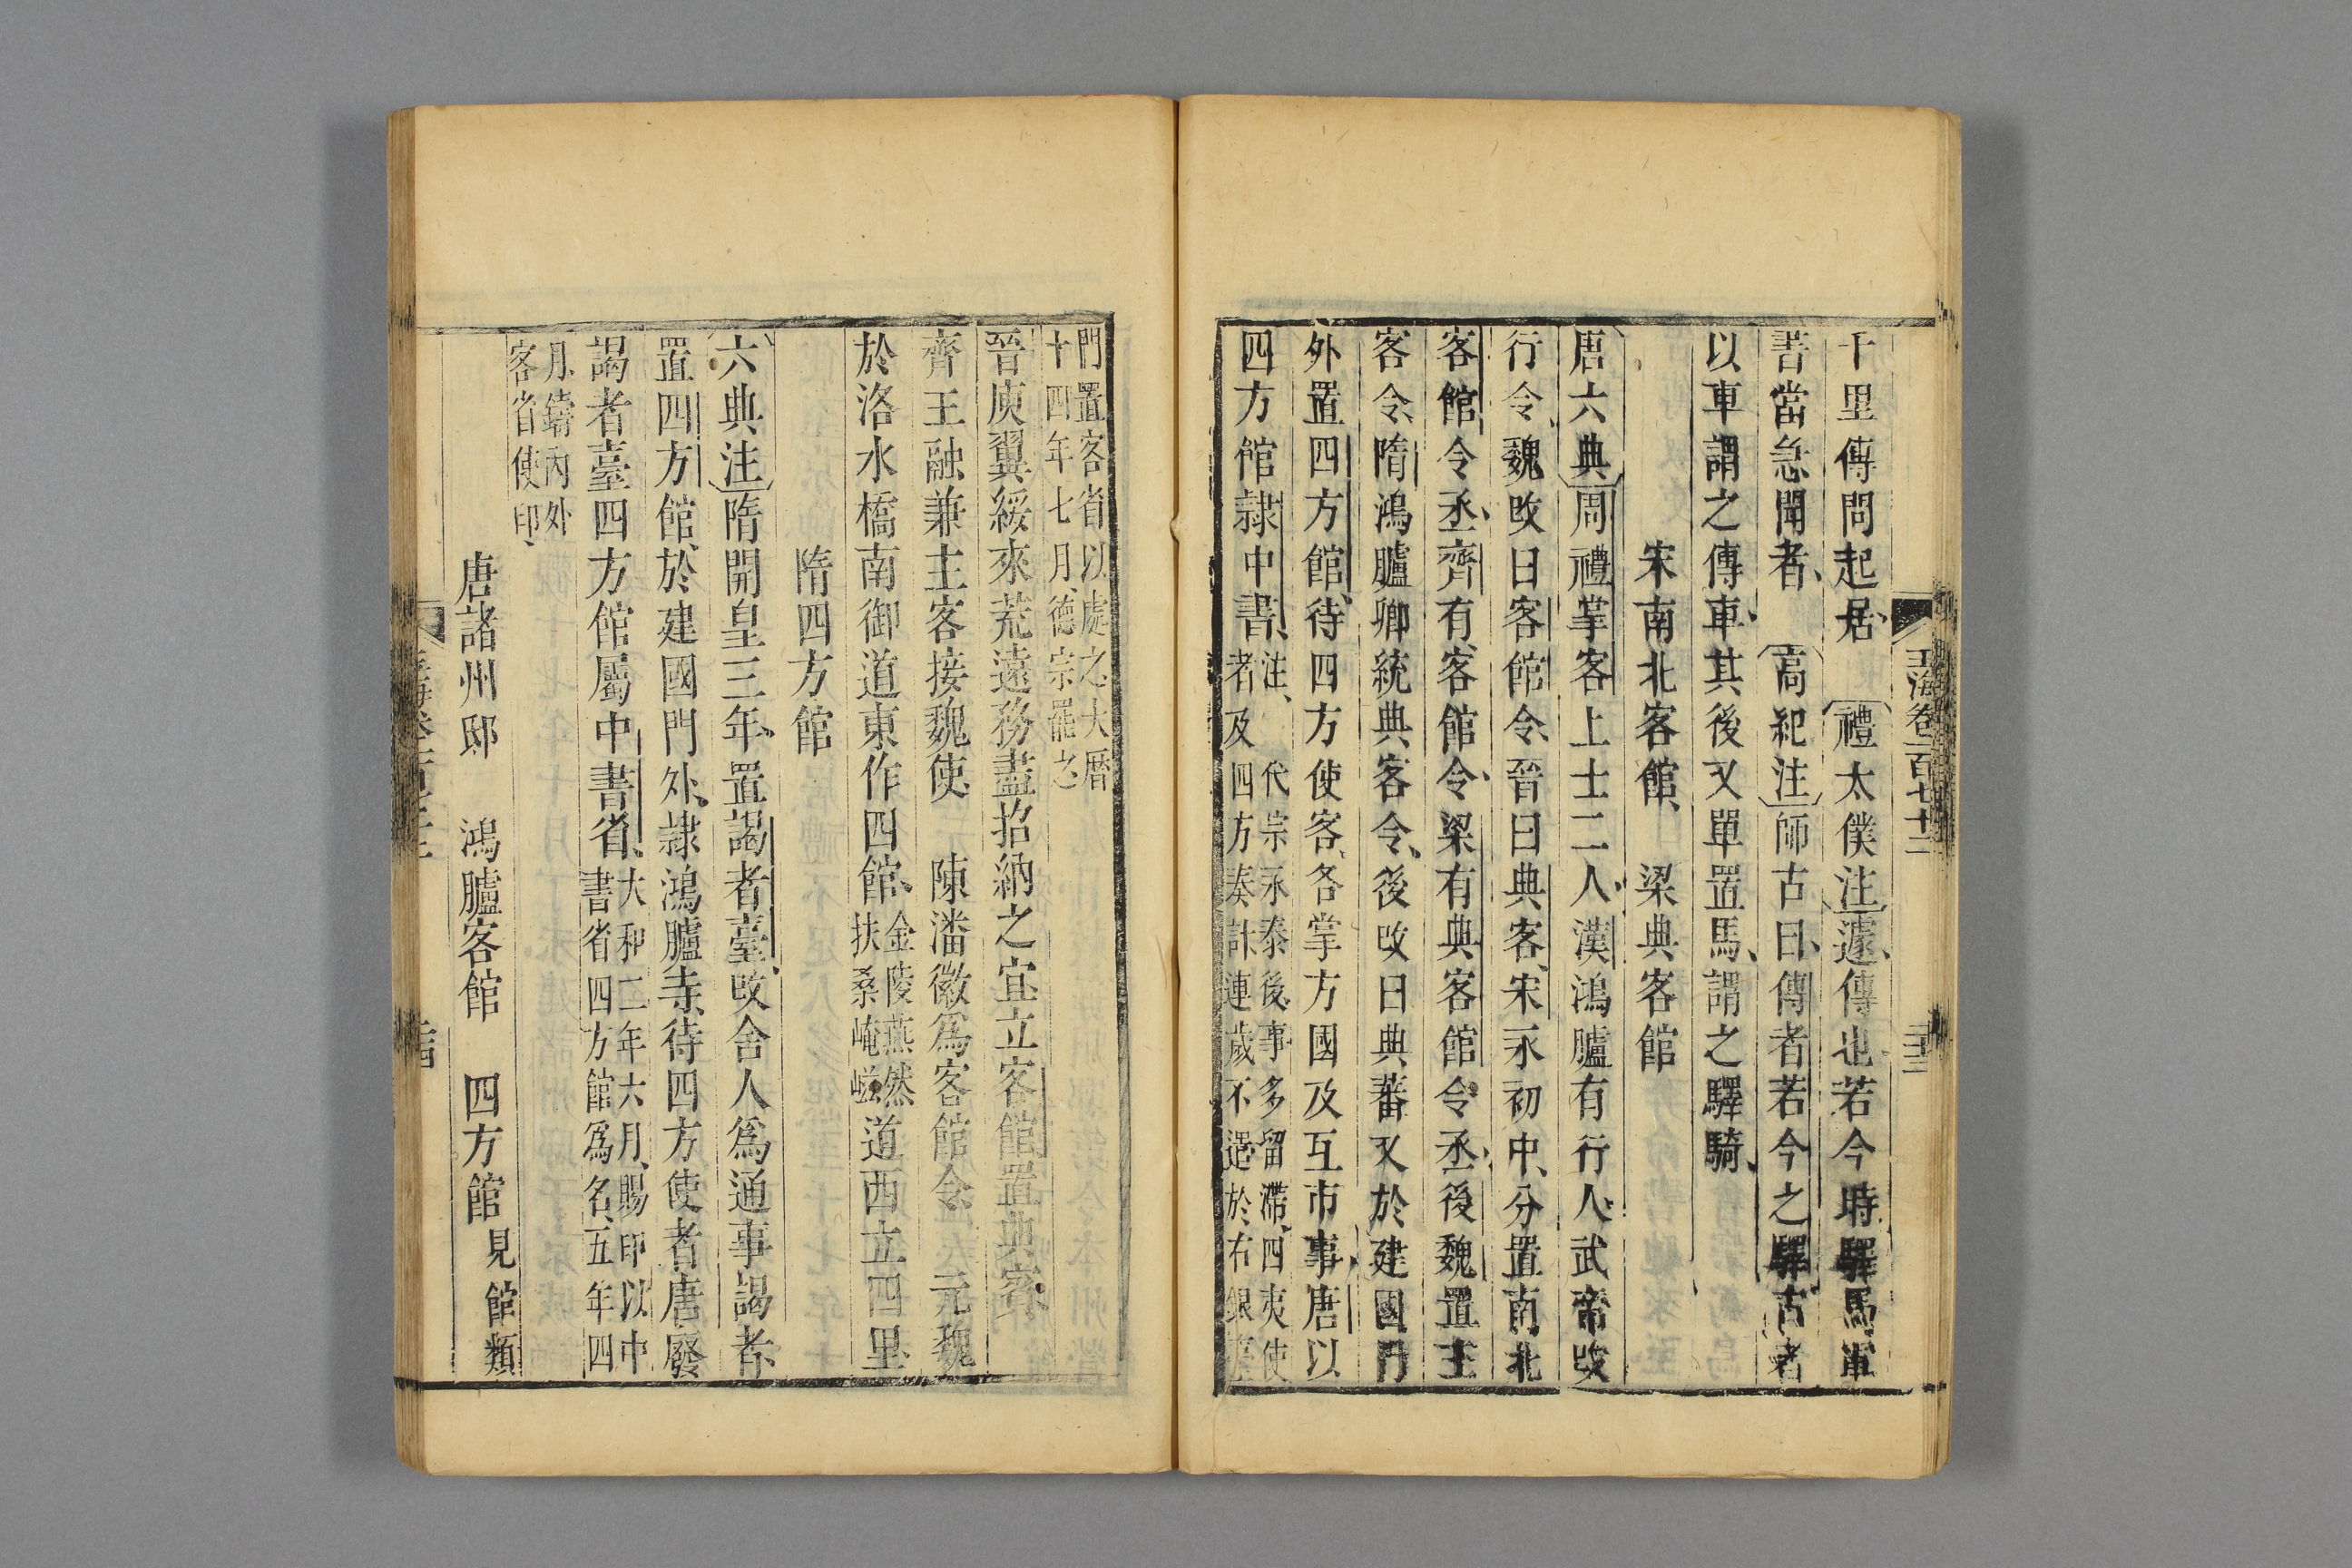 玉海卷一百七十二
二十三
千里傳問起居、 禮太僕注遽、傳也若今時驛馬軍
書當急聞者、 高紀注師古曰、傳者若今之驛古者
以車謂之傳車、其後又單置馬、謂之驛騎、
宋南北客館、 梁典客館
唐六典周禮掌客上士二人、漢鴻臚有行人、武帝改
行令、魏改曰客館令、晉曰典客、宋永初中、分置南北
客館令丞、齊有客館令、梁有典客館令丞、後魏置主
客令、隋鴻臚卿統典客令、後改曰典蕃又於建國門
外置四方館、待四方使客、各掌方國及互市事、唐以
四方館隷中書、注、代宗永泰後、事多留滯、四夷使
者及四方奏計連歲不遣、於右銀臺
門置客省以處之大曆
十四年七月、德宗罷之
晉庾翼綏來荒遠務盡招納之宜立客館置典賓、
齊王融兼主客接魏使 陳潘徽爲客館令 元魏
於洛水橋南御道東作四館、金陵燕然
扶桑崦嵫道西立四里
隋四方館
六典注隋開皇三年、置謁者臺、改舍人爲通事謁者、
置四方館、於建國門外、隷鴻臚寺、待四方使者、唐廢
謁者臺四方館屬中書省、大和二年六月、賜印以中
書省四方館爲名、五年四
月、鑄內外
客省使印、
唐諸州邸 鴻臚客館 四方館見館類